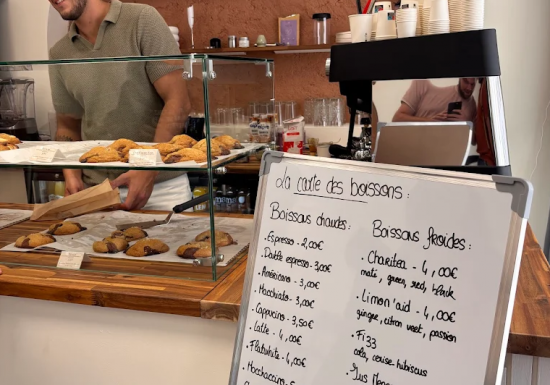 La carte des boissons :
Boissons chaudes :
. Espresso - 2,00€
. Double espresso - 3,00€
. Américano - 3,00€
. Macchiato - 3,00€
. Cappucino - 3,50€
. Latte - 4,00€
. Flatwhite - 4,00€
. Mochaccino
Boissons froides :
. Charitea - 4,00€
maté, green, red, black
. Limon'aid - 4,00€
gingre, citron vert, passion
. Fizz
cola, cerise hibiscus
. Jus